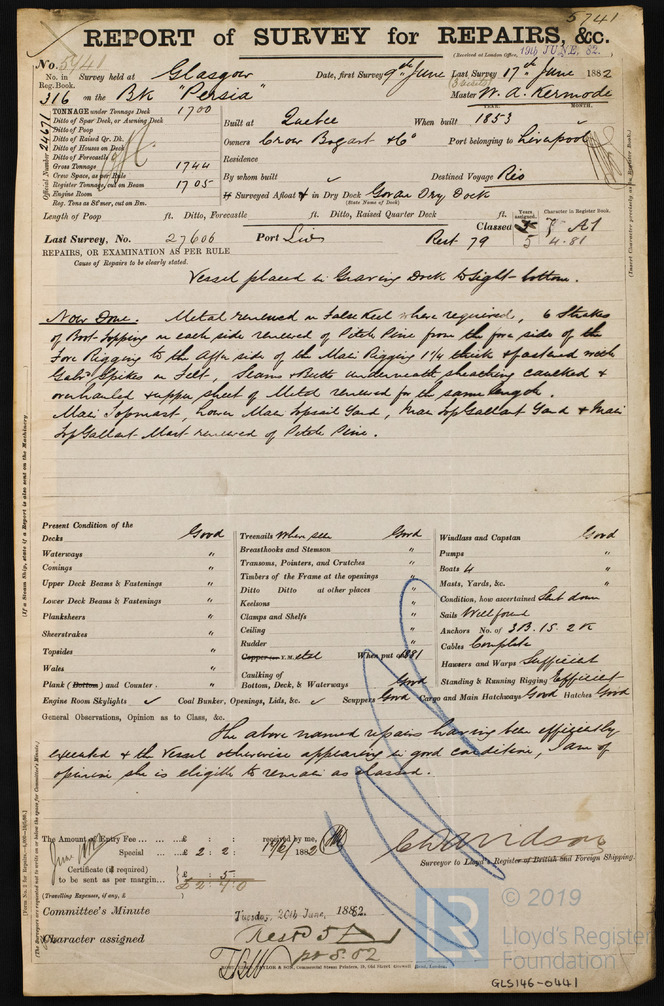 5741
REPORT of SURVEY for REPAIRS, &c.
(Received at London Office, 19th JUNE. 82.
No. 5741
No. in Survey held at Glasgow Date, first Survey 9th June Last Survey 17th June 1882
Reg. Book.
316 on the Bk "Persia" Master W. A. Kermode
TONNAGE under Tonnage Deck 1700
Ditto of Spar Deck, or Awning Deck
Ditto of Poop
Ditto of Raised Qr. Dk.
Ditto of Houses on Deck
Ditto of Forecastle
Gross Tonnage 1744
Crew Space, as per Rule
Register Tonnage, cut on Beam 1705
Engine Room
Reg. Tons as St'mer, cut on Bm.
Official Number 24671
YEAR. MONTH.
Built at Quebec When built 1853
Owners Crow Bogart & Co Port belonging to Liverpool
Residence
By whom built Destined Voyage Rio
If Surveyed Afloat or in Dry Dock Govan Dry Dock
(State Name of Dock)
Length of Poop ft. Ditto, Forecastle ft. Ditto, Raised Quarter Deck ft.
Years assigned. Character in Register Book.
Classed A1
5 4.81
Last Survey, No. 27606 Port Liv Rest 79
REPAIRS, OR EXAMINATION AS PER RULE
Cause of Repairs to be clearly stated.
Vessel placed in Graving Dock to Sight bottom.
Now Done. Metal renewed on False Keel where required, 6 Strakes
of Boot topping on each side renewed of Pitch Pine from the fore side of the
Fore Rigging to the After side of the Main Rigging 1¼ thick & fastened with
Galvd Spikes on Felt, Seams & Butts underneath sheathing caulked &
overhauled & upper sheet of Metal renewed for the same length.
Main Topmast, Lower Main Topsail Yard, Main TopGallant Yard & Main
TopGallant Mast renewed of Pitch Pine.
Present Condition of the
Decks Good
Waterways "
Comings "
Upper Deck Beams & Fastenings "
Lower Deck Beams & Fastenings "
Planksheers "
Sheerstrakes "
Topsides "
Wales "
Plank (Bottom) and Counter. "
Engine Room Skylights ✓ Coal Bunker, Openings, Lids, &c. ✓ Scuppers Good Cargo and Main Hatchways Good Hatches Good
Treenails when seen Good
Breasthooks and Stemson "
Transoms, Pointers, and Crutches "
Timbers of the Frame at the openings "
Ditto Ditto at other places "
Keelsons "
Clamps and Shelfs "
Ceiling "
Rudder "
Copper or Y.M. etal When put on 1881
Caulking of
Bottom, Deck, & Waterways Good
Windlass and Capstan Good
Pumps "
Boats 4 "
Masts, Yards, &c. "
Condition, how ascertained Sent down
Sails Well found
Anchors No. of 3B. 1S. 2K
Cables Complete
Hawsers and Warps Sufficient
Standing & Running Rigging Efficient
General Observations, Opinion as to Class, &c.
The above named repairs having been efficiently
executed & the Vessel otherwise appearing in good condition, I am of
opinion she is eligible to remain as classed.
The Amount of Entry Fee ... £ : : received by me,
Special ... £ 2 : 2 : 19/6/1882
Certificate (if required)
to be sent as per margin... £ : 5
£2: 7.0
(Travelling Expenses, if any, £ )
C Davidson
Surveyor to Lloyd's Register of British and Foreign Shipping.
Committee's Minute Tuesday, 20th June, 1882.
Character assigned
(Insert Character precisely as in Register Book.)
(If a Steam Ship, state if a Report is also sent on the Machinery.
(The Surveyors are requested not to write on or below the space for Committee's Minute.)
© 2019
LR
Lloyd's Register
Foundation
GLS146-0441